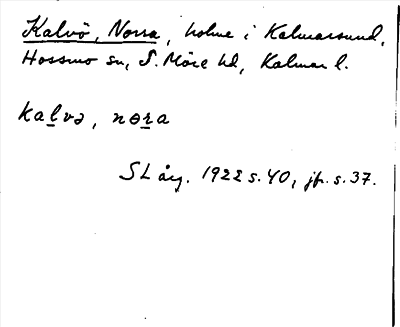 Kalvö, Norra, holme i Kalmarsund,
Hossmo sn, S. Möre hd, Kalmar l.
kaḻvə, nɵṟa
SL årg. 1922 s. 40, jfr. s. 37.